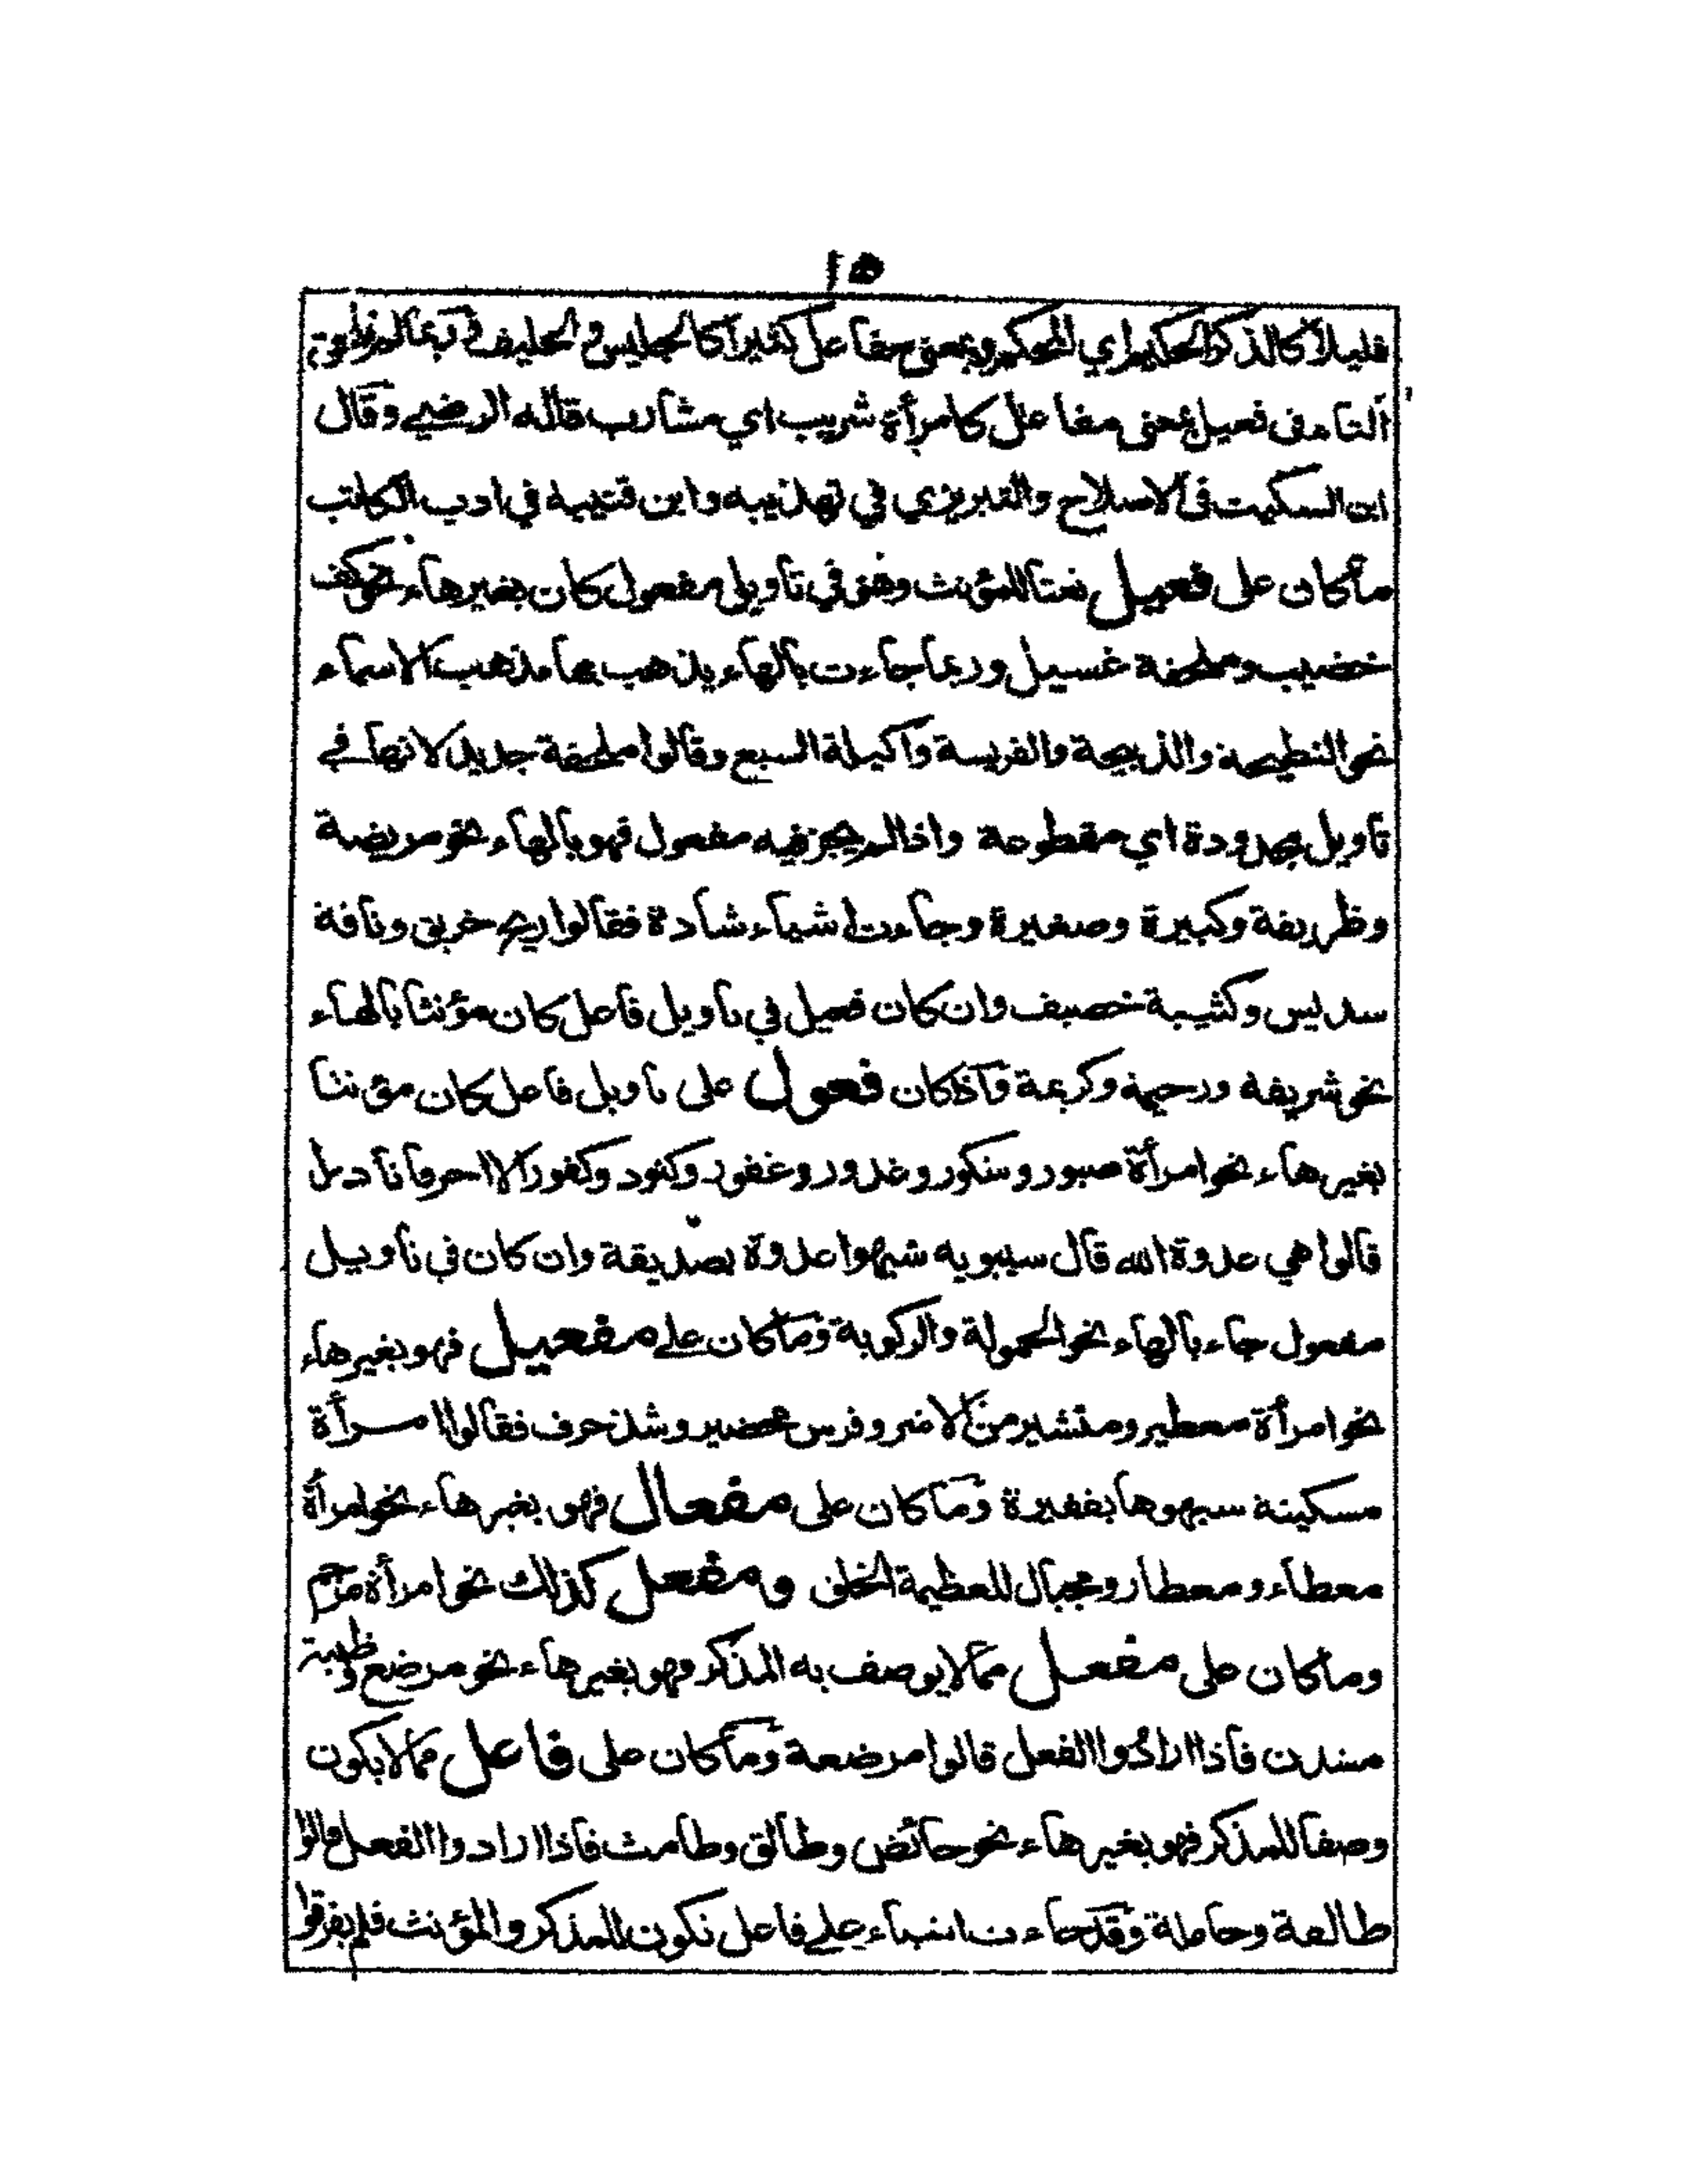 ١٥
قليلا كالذكر الحكيم اي المحكم وبمعنى مفاعل كثيرا كالجليس والحليف
التاء في فعيل بمعنى مفاعل كامرأة شريب اي مشارب قاله الرضي وقال
ابن السكيت في الاصلاح والتبريزي في تهذيبه وابن قتيبة في ادب الكاتب
ما كان على فعيل نعتا للمؤنث وهو في تاويل مفعول كان بغير هاء نحو كف
خضيب وملحفة غسيل وربما جاءت بالهاء يذهب بها مذهب الاسماء
نحو النطيحة والذبيحة والفريسة واكيلة السبع وقالوا ملحفة جديد لانها في
تاويل مجدودة اي مقطوعة واذا لم يجز فيه مفعول فهو بالهاء نحو مريضة
وظريفة وكبيرة وصغيرة وجاءت اشياء شاذة فقالوا ريح خريق وناقة
سديس وكتيبة خصيف وان كان فعيل في تاويل فاعل كان مؤنثا بالهاء
نحو شريفة ورحيمة وكريمة واذا كان فعول على تاويل فاعل كان مؤنثا
بغير هاء نحو امرأة صبور وشكور وغدور وغفور وكنود وكفور الا احرفا نادرا
قالوا هي عدوة الله قال سيبويه شبهوا عدوة بصديقة وان كان في تاويل
مفعول جاء بالهاء نحو الحمولة والركوبة وما كان على مفعيل فهو بغير هاء
نحو امرأة معطير ومئشير من الاشر وفرس محضير وشذ حرف فقالوا امرأة
مسكينة شبهوها بفقيرة وما كان على مفعال فهو بغير هاء نحو امرأة
معطاء ومعطار ومجبال للعظيمة الخلق ومفعل كذلك نحو امرأة مرجم
وما كان على مفعل مما لا يوصف به المذكر فهو بغير هاء نحو مرضع وظبية
مشدن فاذا ارادوا الفعل قالوا مرضعة وما كان على فاعل مما لا يكون
وصفا للمذكر فهو بغير هاء نحو حائض وطالق وطامث فاذا ارادوا الفعل قالوا
طالقة وحاملة وقد جاءت اشياء على فاعل تكون للمذكر والمؤنث فلم يفرقوا